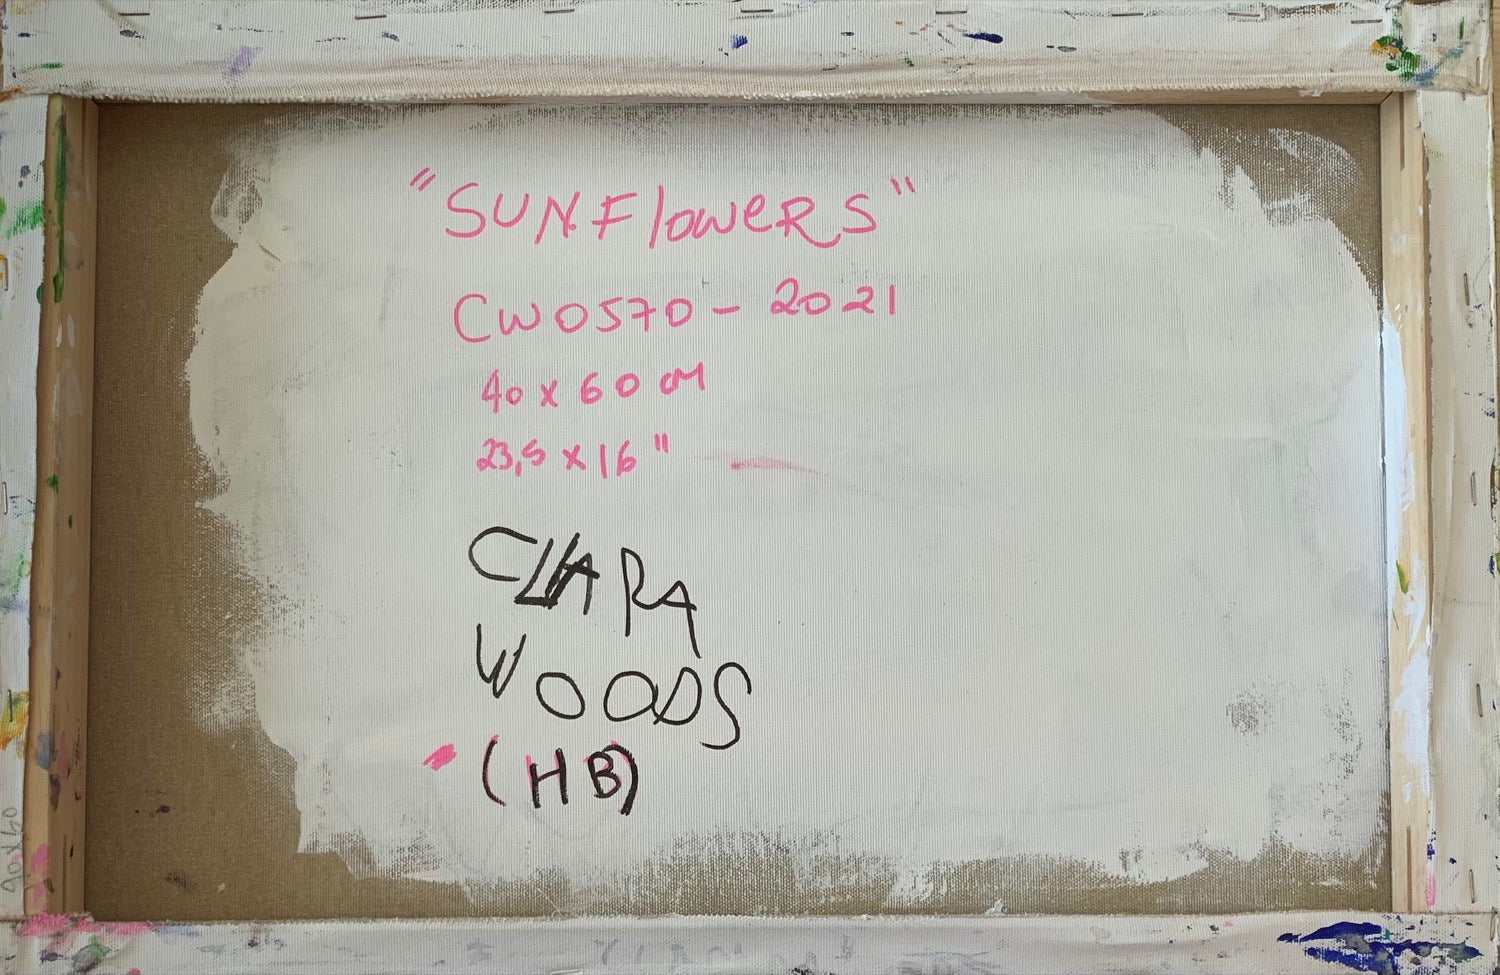 "SUNFlowERS"
CW0570 - 2021
40 x 60 cM
23,5 x 16"
CLARA
WOODS
(HB)
40x60